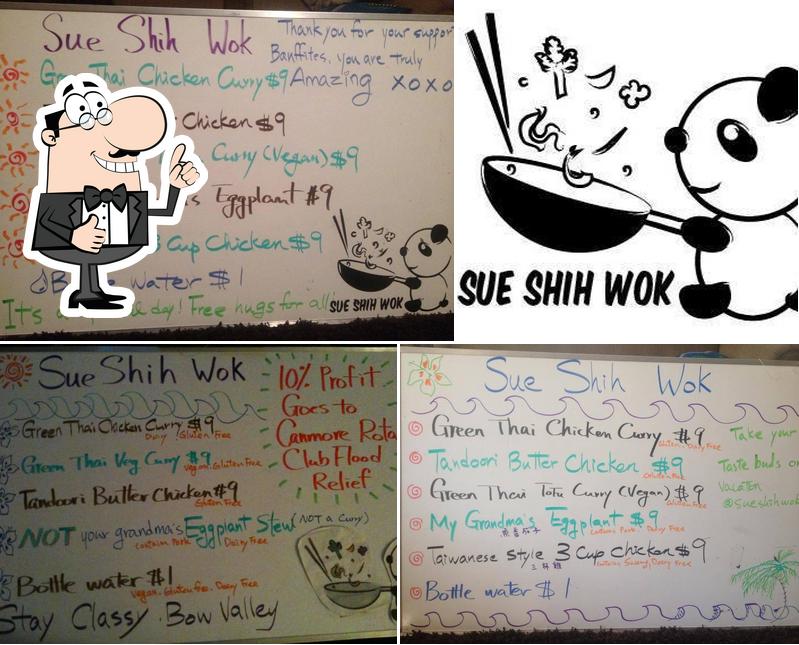 Sue Shih Wok
Thank you for your suppor
Banffites, you are truly
Amazing xoxo
Thai Chicken Curry $9
Chicken $9
Curry (Vegan) $9
Eggplant $9
3 Cup Chicken $9
water $1
It's day! Free hugs for all!
SUE SHIH WOK
SUE SHIH WOK
Sue Shih Wok
Green Thai Chicken Curry $9
Dairy Gluten Free
Green Thai Veg Curry $9
Vegan. Gluten Free
Tandoori Butter Chicken $9
Gluten Free
NOT your grandma's Eggplant Stew (NOT a Curry)
Contains Pork. Dairy Free
Bottle water $1
Vegan. Gluten free. Dairy Free
Stay Classy. Bow Valley
10% Profit
Goes to
Canmore Rota
Club Flood
Relief
Sue Shih Wok
Green Thai Chicken Curry $9
Gluten. Dairy Free
Tandoori Butter Chicken $9
Gluten Free
Green Thai Tofu Curry (Vegan) $9
Gluten Free
My Grandma's Eggplant $9
魚香茄子 Contains Pork. Dairy Free
Taiwanese style 3 Cup chicken $9
三杯雞 Dairy Free
Bottle water $1
Take your
Taste buds on
Vacation
@Sueshihwok